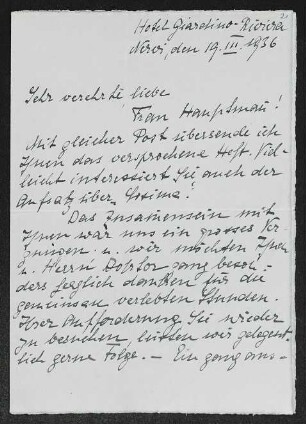 Hotel Giardino-Riviera
Nervi, den 19. III. 1936
Sehr verehrte, liebe
Frau Hauptmann!
Mit gleicher Post übersende ich
Ihnen das versprochene Heft. Viel-
leicht interessiert Sie auch der
Aufsatz über „Cosima“.
Das Zusammensein mit
Ihnen war uns ein grosses Ver-
gnügen u. wir möchten Ihnen
u. Herrn Doktor ganz beson-
ders herzlich danken für die
gemeinsam verlebten Stunden.
Ihrer Aufforderung Sie wieder
zu besuchen, leisten wir gelegent-
lich gerne Folge. – Ein ganz aus-